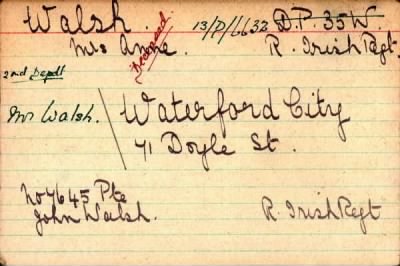 Walsh. 13/D/6632 D.P. 35W.
Mrs Anne. Deceased R. Irish Regt.
2nd Depdt
Mr Walsh. Waterford City
71 Doyle St.
No 7645 Pte
John Walsh. R. Irish Regt